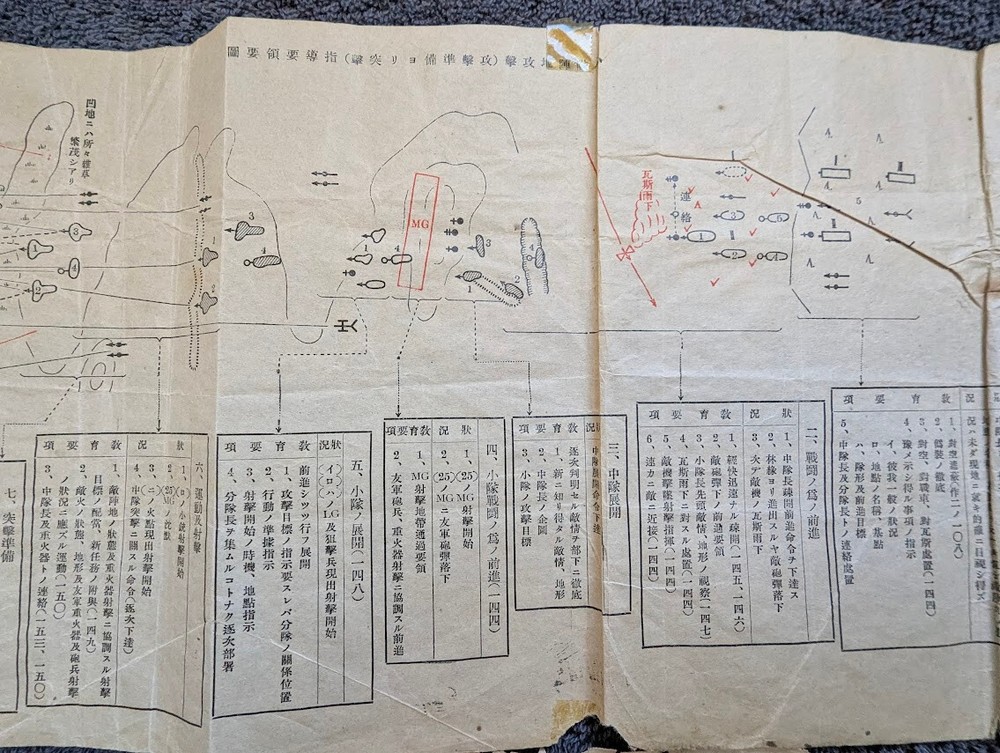 地攻擊(攻擊準備ヨリ突擊)指導要領要圖
凹地ニハ所々雜草
繁茂シアリ
MG
瓦斯雨下
連絡
況
ハ未ダ現地ニ就キ的確ニ目視シ得ズ
教育要項
1、對空遮蔽(作二ノ一〇八)
2、僞裝ノ徹底
3、對空、對戰車、對瓦斯處置(一四四)
4、豫メ示シ得ル事項ノ指示
イ、彼我一般ノ狀況
ロ、地點ノ名稱、基點
ハ、隊形及前進目標
5、中隊長及分隊長トノ連絡處置
二、戰鬪ノ爲ノ前進
狀況
1、中隊長疎開前進命令ヲ下達ス
2、林緣ヨリ進出スルヤ敵砲彈落下
3、次デ敵機ノ瓦斯雨下
教育要項
1、輕快迅速ナル疎開(一四五、一四六)
2、敵砲彈下ノ前進要領
3、小隊長先頭敵情、地形ノ視察(一四七)
4、瓦斯雨下ニ對スル處置(一四四)
5、敵機擊墜射擊指揮(一四四)
6、速カニ敵ニ近接(一四四)
三、中隊展開
狀況
中隊展開命令下達
教育要項
逐次判明セル敵情ヲ部下ニ徹底
1、新ニ知リ得タル敵情、地形
2、中隊長ノ企圖
3、小隊ノ攻擊目標
四、小隊戰鬪ノ爲ノ前進(一四四)
狀況
1、(25)ノMG射擊開始
2、(25)ノMGニ友軍砲彈落下
教育要項
1、MG射擊地帶通過要領
2、友軍砲兵、重火器射擊ニ協調スル前進
五、小隊ノ展開(一四八)
狀況
(イ)(ロ)(ハ)LG及狙擊兵現出射擊開始
教育要項
前進シツツ行フ展開
1、攻擊目標ノ指示要スレバ分隊ノ關係位置
2、行動ノ準據指示
3、射擊開始ノ時機、地點指示
4、分隊長ヲ集ムルコトナク逐次部署
六、運動及射擊
狀況
1、(ロ)ノ小銃射擊開始
2、(25)ハ沈默
3、(ニ)ノ火點現出射擊開始
4、中隊突擊ニ關スル命令(逐次下達)
教育要項
1、敵陣地ノ狀態及重火器射擊ニ協調スル射擊
目標ノ配當、新任務ノ附與(一四九)
2、敵火ノ狀態、地形及友軍重火器及砲兵射擊
ノ狀況ニ應ズル運動(一五〇)
3、中隊長及重火器トノ連絡(一五三、一五〇)
七、突擊準備